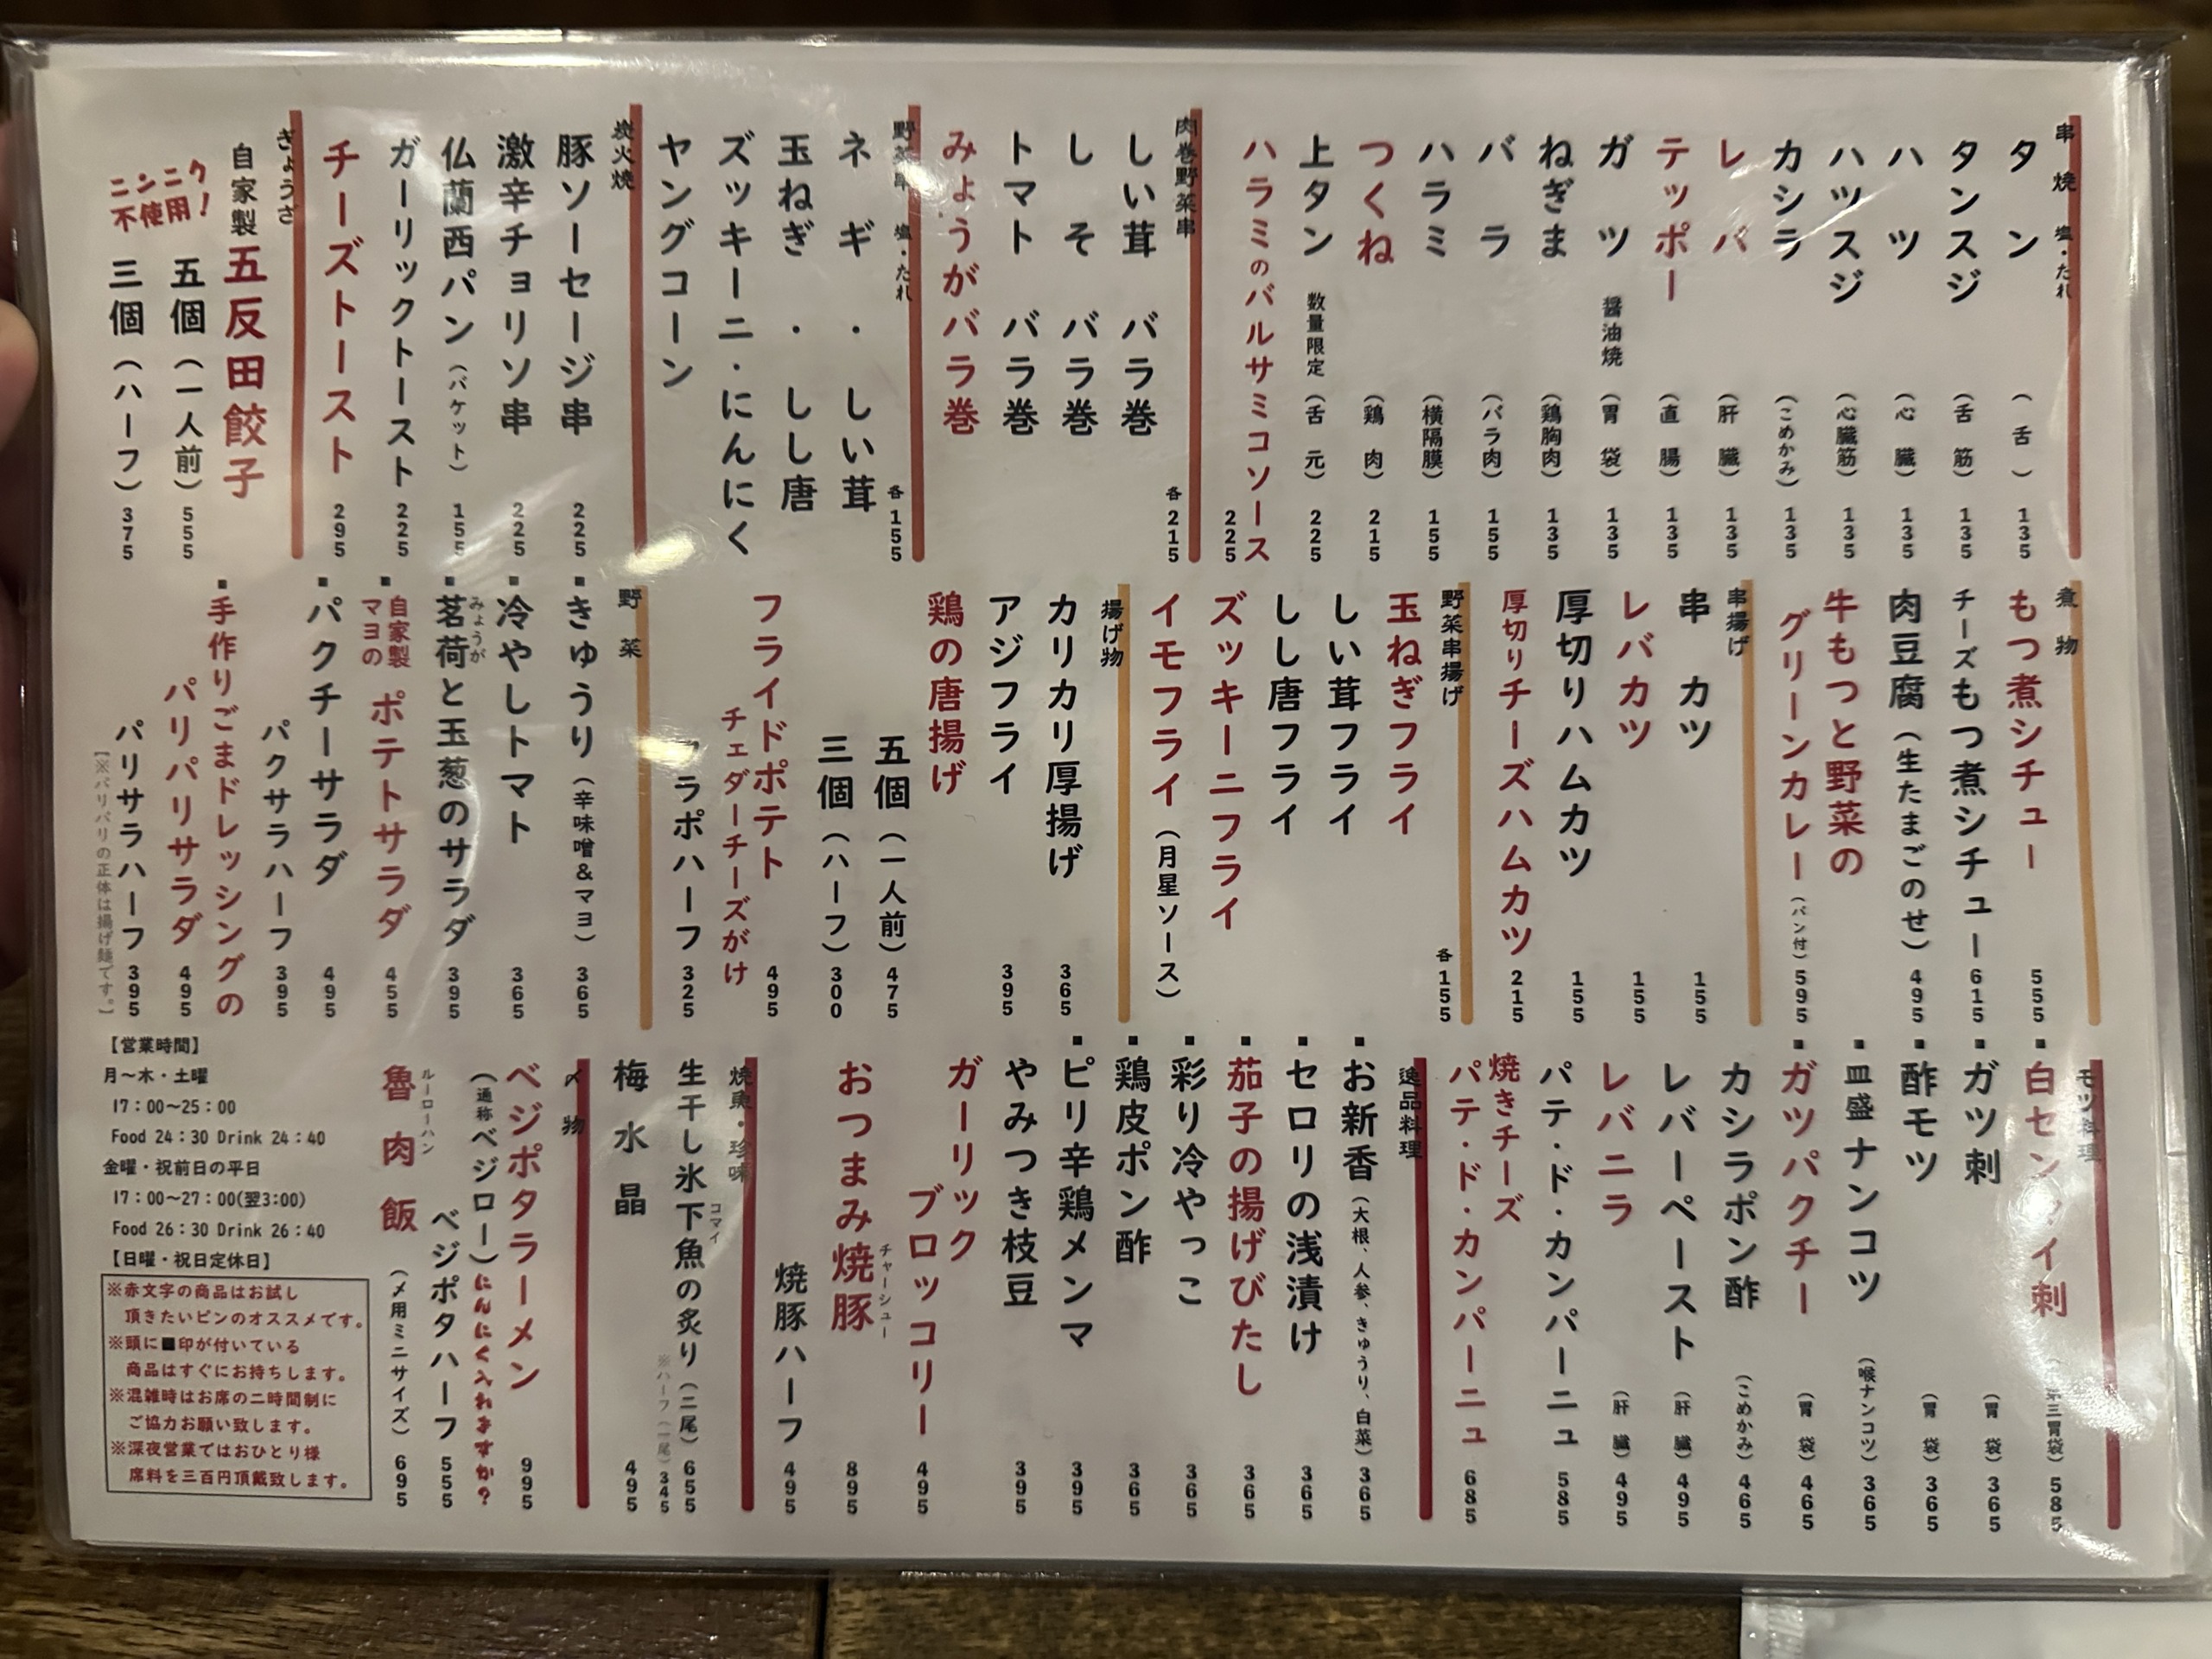 串焼 塩・たれ
タン（舌）135
タンスジ（舌筋）135
ハツ（心臓）135
ハツスジ（心臓筋）135
カシラ（こめかみ）135
レバ（肝臓）135
テッポー（直腸）135
ガツ 醤油焼（胃袋）135
ねぎま（鶏胸肉）135
バラ（バラ肉）155
ハラミ（横隔膜）155
つくね（鶏肉）215
上タン 数量限定（舌元）225
ハラミのバルサミコソース 225
肉巻野菜串 各215
しい茸 バラ巻
しそ バラ巻
トマト バラ巻
みょうがバラ巻
野菜串 塩・たれ 各155
ネギ・しい茸
玉ねぎ・しし唐
ズッキーニ・にんにく
ヤングコーン
炭火焼
豚ソーセージ串 225
激辛チョリソ串 225
仏蘭西パン（バケット）155
ガーリックトースト 225
チーズトースト 295
ぎょうざ
自家製 五反田餃子
五個（一人前）555
三個（ハーフ）375
ニンニク
不使用！
煮物
もつ煮シチュー 555
チーズもつ煮シチュー 615
肉豆腐（生たまごのせ）495
牛もつと野菜の
グリーンカレー（パン付）595
串揚げ
串カツ 155
レバカツ 155
厚切りハムカツ 155
厚切りチーズハムカツ 215
野菜串揚げ 各155
玉ねぎフライ
しい茸フライ
しし唐フライ
ズッキーニフライ
イモフライ（月星ソース）
揚げ物
カリカリ厚揚げ 365
アジフライ 395
鶏の唐揚げ
五個（一人前）475
三個（ハーフ）300
フライドポテト 495
チェダーチーズがけ
ラポハーフ 325
野菜
■きゅうり（辛味噌＆マヨ）365
■冷やしトマト 365
■茗荷と玉葱のサラダ 395
みょうが
■自家製マヨの ポテトサラダ 455
■パクチーサラダ 495
パクサラハーフ 395
■手作りごまドレッシングの
パリパリサラダ 495
パリサラハーフ 395
［※パリパリの正体は揚げ麺です。］
モツ料理
■白センマイ刺（第三胃袋）585
■ガツ刺（胃袋）365
■酢モツ（胃袋）365
■皿盛ナンコツ（喉ナンコツ）365
■ガツパクチー（胃袋）465
カシラポン酢（こめかみ）465
レバーペースト（肝臓）495
レバニラ（肝臓）495
パテ・ド・カンパーニュ 585
焼きチーズ
パテ・ド・カンパーニュ 685
逸品料理
■お新香（大根、人参、きゅうり、白菜）365
■セロリの浅漬け 365
■茄子の揚げびたし 365
■彩り冷やっこ 365
■鶏皮ポン酢 365
■ピリ辛鶏メンマ 395
やみつき枝豆 395
ガーリック
ブロッコリー 495
おつまみ焼豚 895
チャーシュー
焼豚ハーフ 495
焼魚・珍味
生干し氷下魚の炙り（二尾）655
コマイ
※ハーフ（一尾）345
梅水晶 495
〆物
ベジポタラーメン 995
（通称ベジロー）にんにく入れますか？
ベジポタハーフ 555
魯肉飯（〆用ミニサイズ）695
ルーローハン
【営業時間】
月～木・土曜
17：00～25：00
Food 24：30 Drink 24：40
金曜・祝前日の平日
17：00～27：00(翌3:00)
Food 26：30 Drink 26：40
【日曜・祝日定休日】
※赤文字の商品はお試し
頂きたいピンのオススメです。
※頭に■印が付いている
商品はすぐにお持ちします。
※混雑時はお席の二時間制に
ご協力お願い致します。
※深夜営業ではおひとり様
席料を三百円頂戴致します。